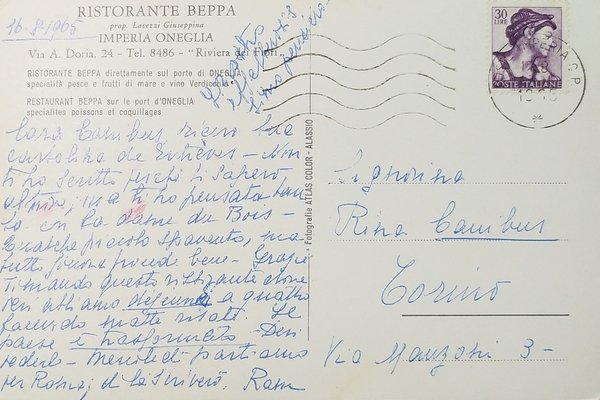 16-8-1965
RISTORANTE BEPPA
prop. Lavezzi Giuseppina
IMPERIA ONEGLIA
Via A. Doria, 24 - Tel. 8486 - "Riviera dei Fiori"
RISTORANTE BEPPA direttamente sul porto di ONEGLIA
specialità pesce e frutti di mare e vino Verdicchio
RESTAURANT BEPPA sur le port d'ONEGLIA
specialites poissons et coquillages
Cara Canibus, ricevo tua
cartolina da Entrèves - Non
ti ho scritto perché ti sapevo
ma ti ho pensata tan
to con la dame du Bois -
Qualche piccolo spavento, ma
tutto finora procede bene - Grazie
Ti mando questo ristorante dove
ieri abbiamo a quattro
facendo matte risate. Le
paese è trasformato. Desi
derlo - Mercoledì partiamo
per Roma; di là scriverò.
- Fotografie ATLAS COLOR - ALASSIO
30
LIRE
POSTE ITALIANE
Signorina
Rina Canibus
Torino
Via Manzoni 3 -